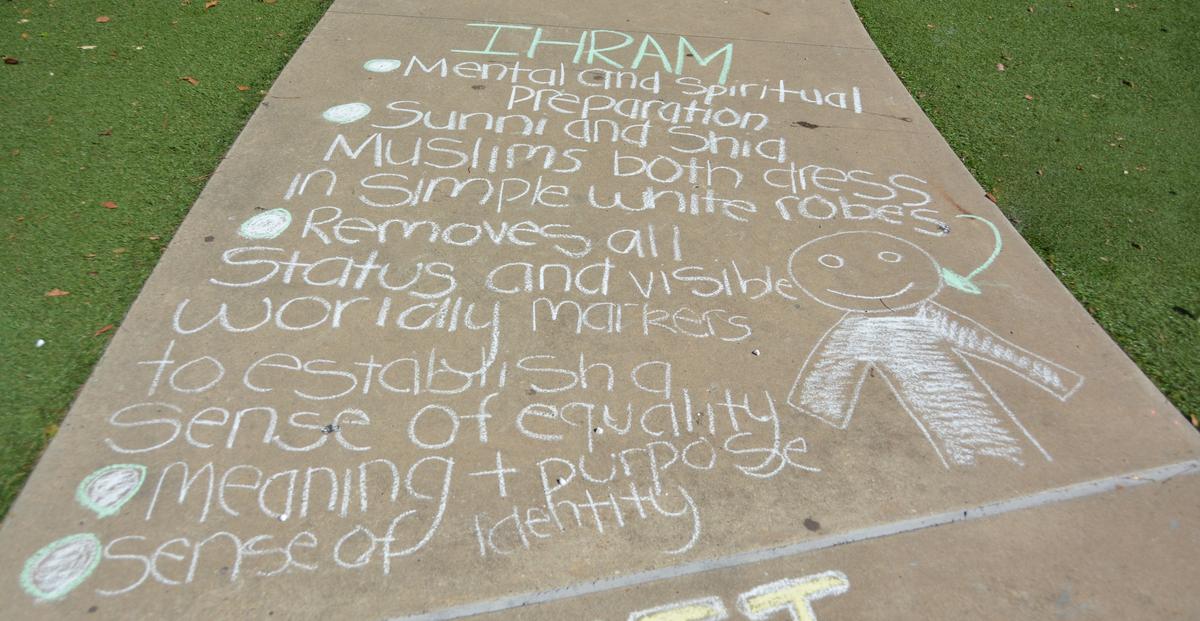 IHRAM
Mental and Spiritual
Preparation
Sunni and Shia
Muslims both dress
in simple white robes
Removes all
Status and visible
worldly markers
to establish a
sense of equality
meaning + purpose
sense of identity